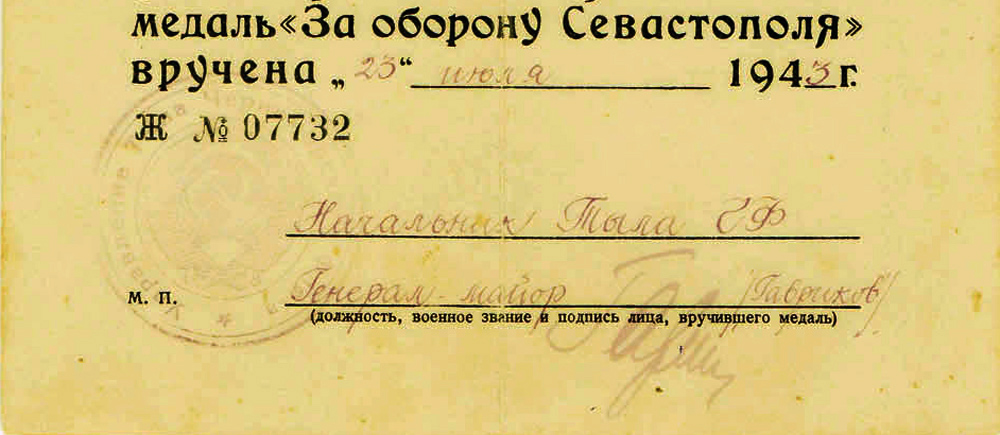 медаль «За оборону Севастополя»
вручена „23“ июля 1943 г.
Ж № 07732
Начальник Тыла ЧФ
м. п. Генерал-майор /Гавриков/
(должность, военное звание и подпись лица, вручившего медаль)
Управление Тыла